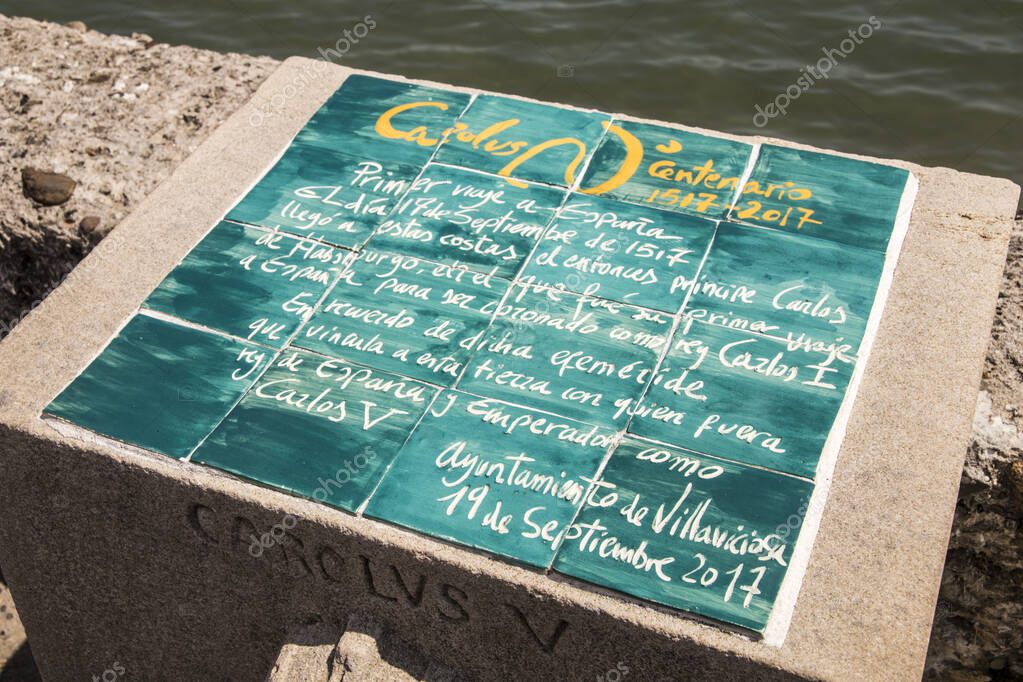 Carolus
V Centenario
1517 2017
Primer viaje a España
El día 17 de Septiembre de 1517
llegó a estas costas el entonces príncipe Carlos
de Habsburgo, en el que fue su primer viaje
a España para ser coronado como rey Carlos I
En recuerdo de dicha efeméride
que vincula a esta tierra con quien fuera
rey de España y Emperador como
Carlos V
Ayuntamiento de Villaviciosa
19 de Septiembre 2017
CAROLVS V
depositphotos
depositphotos
depositphotos
depositphotos
depositphotos